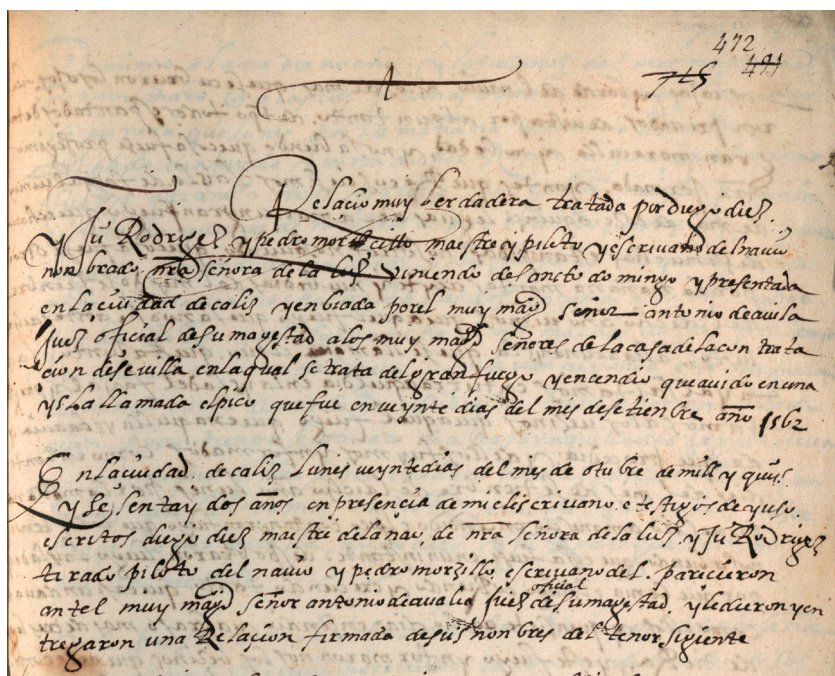 472
715 491
Relacio muy berdadera tratada por diego diez
y Ju Rodrigez y pedro morcillo maestre y piloto y escrivano del navio
nonbrado nra señora de la luz viniendo de sancto domingo y presentada
en la ciudad de caliz y enbiada por el muy magco señor antonio de avila
Juez oficial de su magestad a los muy magcos señores de la casa de la contrata
cion de sevilla en la qual se trata del gran fuego y encendio que avido en una
ysla llamada el pico que fue en veynte dias del mes de setienbre año 1562
En la ciudad de caliz lunes veynte dias del mes de otubre de mill y quis
y sesenta y dos años en presencia de mi el escrivano e testigos de yuso
escritos diego diez maestre de la nao de nra señora de la luz y Ju Rodrigez
tirado piloto del navio y pedro morzillo escrivano del parecieron
antel muy magco señor antonio de avila juez oficial de su magestad y le dieron y en
tregaron una Relacion firmada de sus nonbres del tenor sigiente